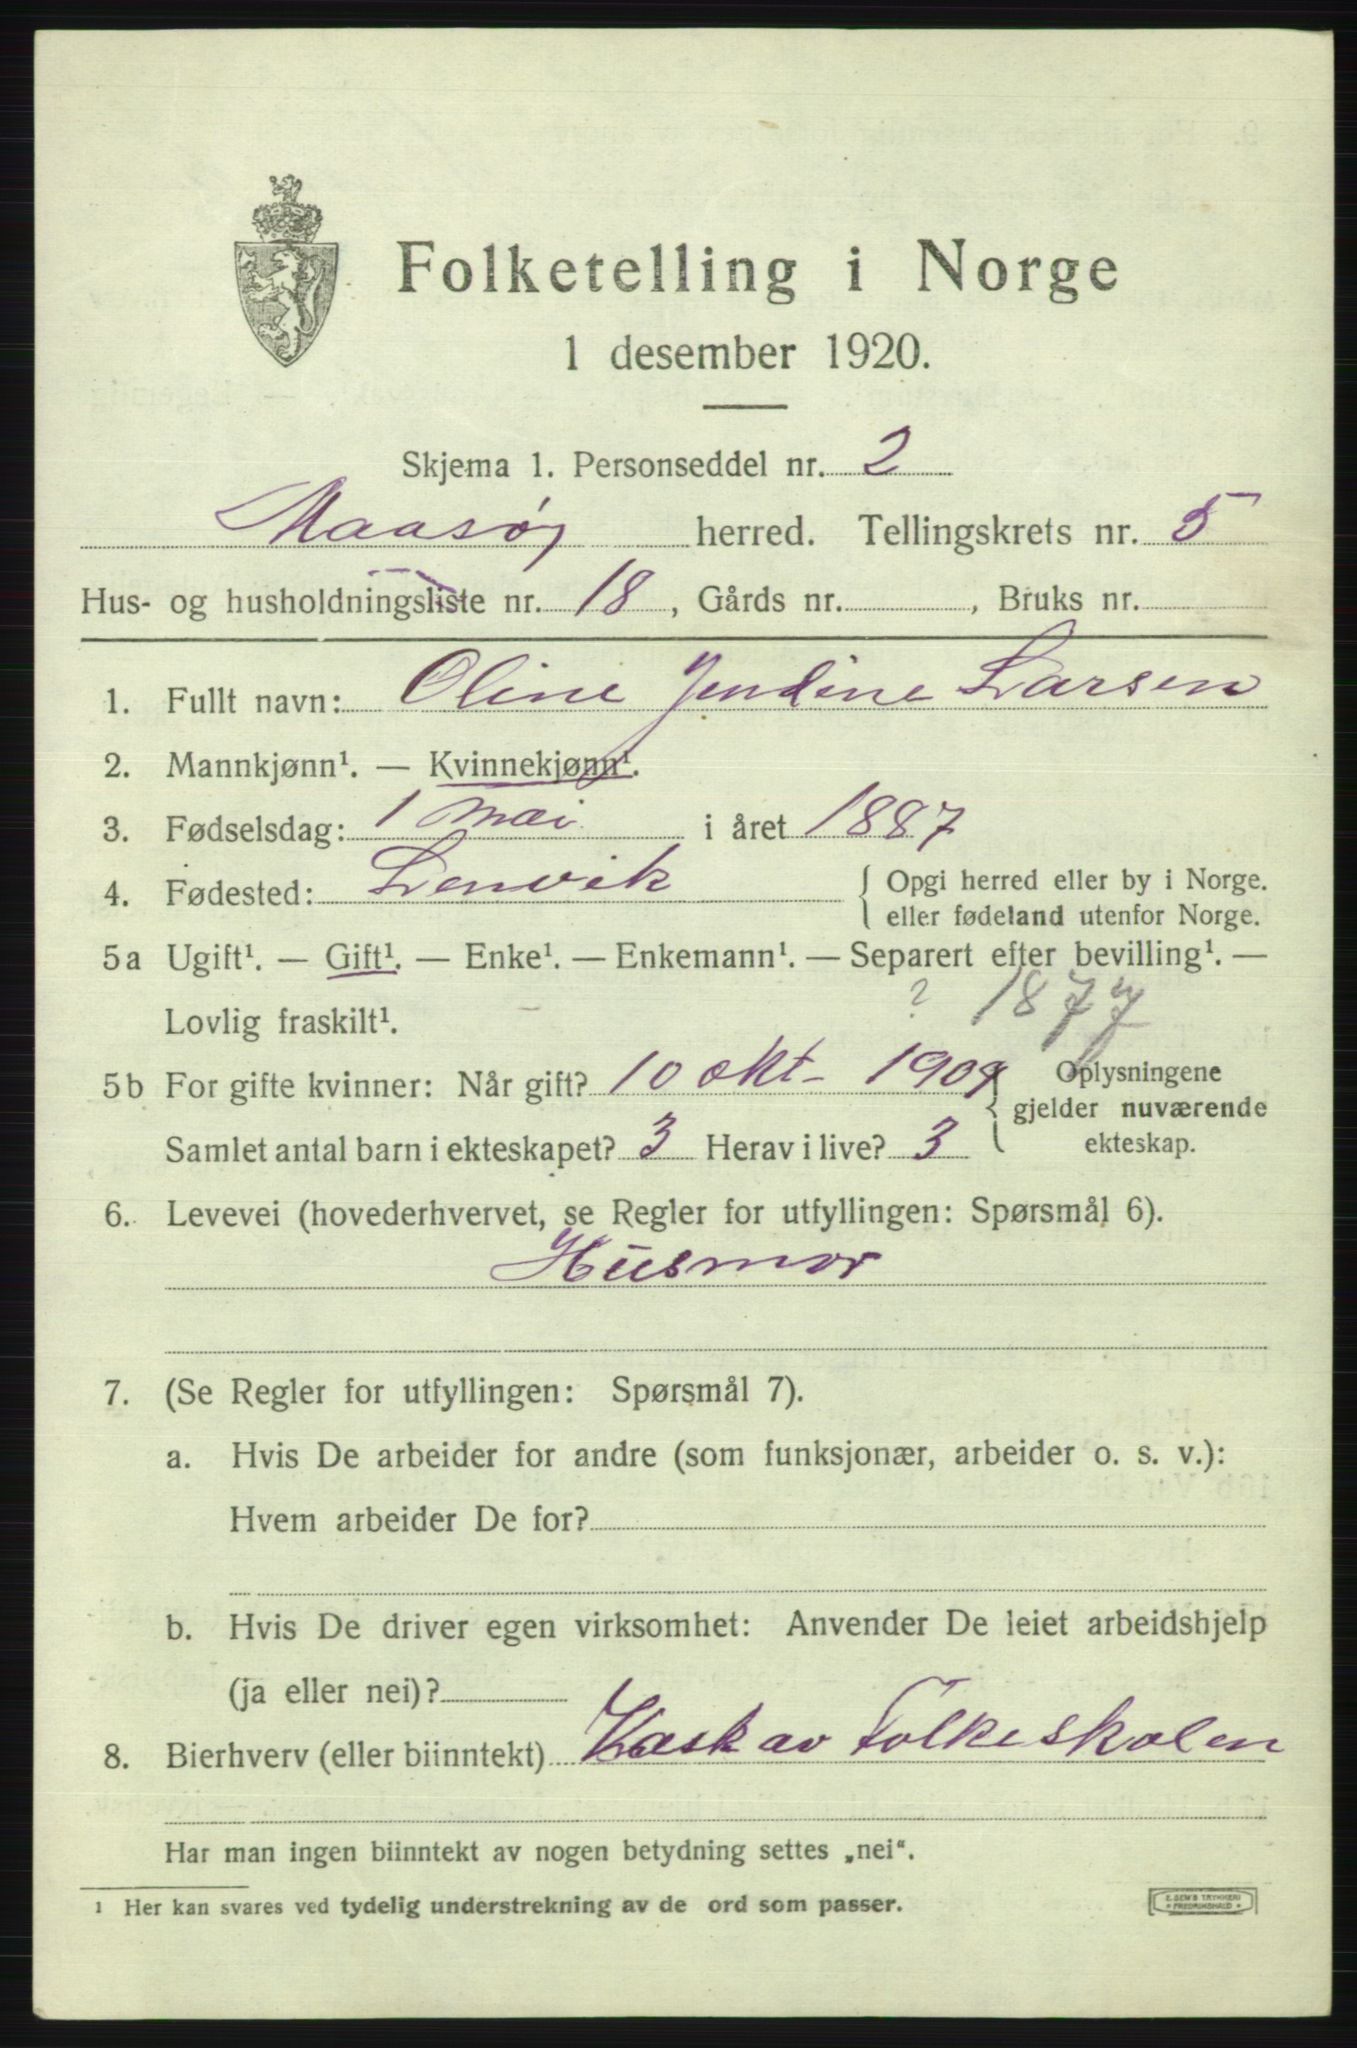 Folketelling i Norge
1 desember 1920.
Skjema 1. Personseddel nr. 2
Maasøy herred. Tellingskrets nr. 5
Hus- og husholdningsliste nr. 18, Gårds nr. , Bruks nr.
1. Fullt navn: Oline Jendine Larsen
2. Mannkjønn¹. — Kvinnekjønn¹.
3. Fødselsdag: 1 mai i året 1887
4. Fødested: Lenvik { Opgi herred eller by i Norge.
eller fødeland utenfor Norge.
5a Ugift¹. — Gift¹. — Enke¹. — Enkemann¹. — Separert efter bevilling¹. —
Lovlig fraskilt¹. ? 1877
5b For gifte kvinner: Når gift? 10 okt- 1909 { Oplysningene
gjelder nuværende
Samlet antal barn i ekteskapet? 3 Herav i live? 3 ekteskap.
6. Levevei (hovederhvervet, se Regler for utfyllingen: Spørsmål 6).
Husmor
7. (Se Regler for utfyllingen: Spørsmål 7).
a. Hvis De arbeider for andre (som funksjonær, arbeider o. s. v.):
Hvem arbeider De for?
b. Hvis De driver egen virksomhet: Anvender De leiet arbeidshjelp
(ja eller nei)?
8. Bierhverv (eller biinntekt) Vask av Folkeskolen
Har man ingen biinntekt av nogen betydning settes „nei“.
¹ Her kan svares ved tydelig understrekning av de ord som passer.
E. SEM'S TRYKKERI
FREDRIKSHALD